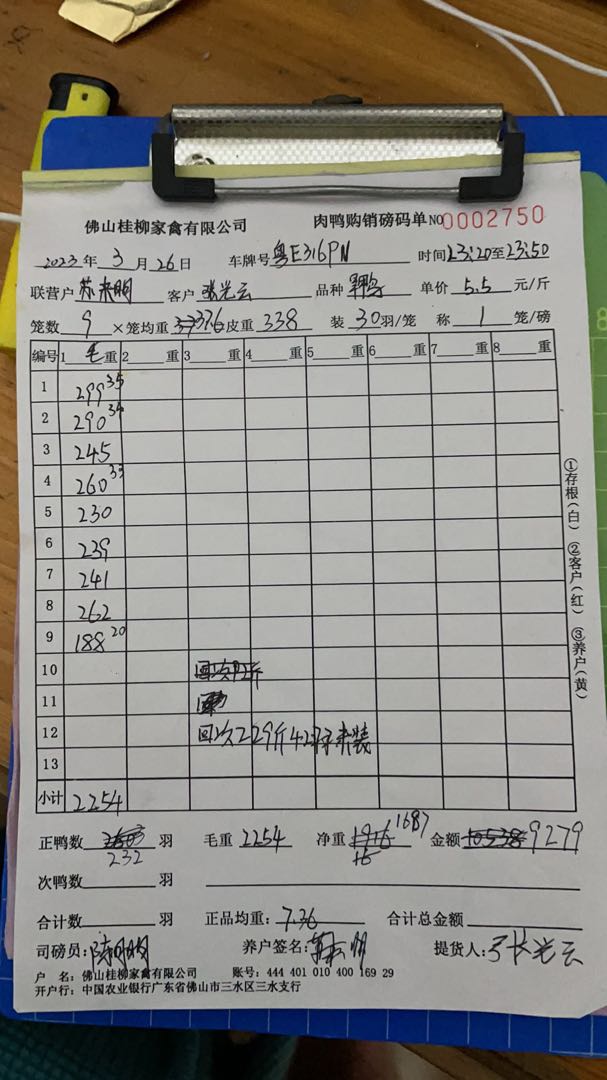 佛山桂柳家禽有限公司 肉鸭购销磅码单 NO 0002750
2023年 3月 26日 车牌号 粤E316PN 时间 23:20至23:50
联营户 客户 张光云 品种 单价 5.5 元/斤
笼数 9 ×笼均重 37.6 皮重 338 装 30 羽/笼 称 1 笼/磅
编号 1 毛 重 2 重 3 重 4 重 5 重 6 重 7 重 8 重
1 299 35
2 290 34
3 245
4 260 33
5 230
6 239
7 241
8 262
9 188 20
10
11
12 回次229斤42只未装
13
小计 2254
①存根(白) ②客户(红) ③养户(黄)
正鸭数 232 羽 毛重 2254 净重 1687 金额 9279
次鸭数 羽
合计数 羽 正品均重: 7.36 合计总金额
司磅员: 养户签名: 提货人: 张光云
户 名: 佛山桂柳家禽有限公司 账号: 444 401 010 400 169 29
开户行: 中国农业银行广东省佛山市三水区三水支行